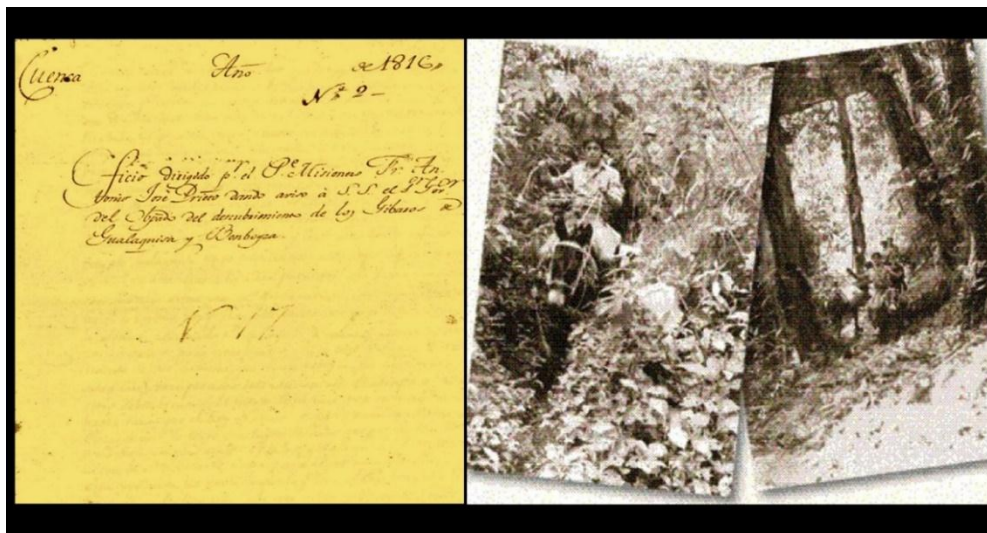 Cuenca Año de 1816,
Nº 2-
Oficio dirigido pr. el Pe. Misionero Fr. An-
tonio José Prieto dando aviso à S.S. el Sr. Gor
del Obpado del descubrimiento de los Gibaros de
Gualaquisa y Bomboyza.
N 17